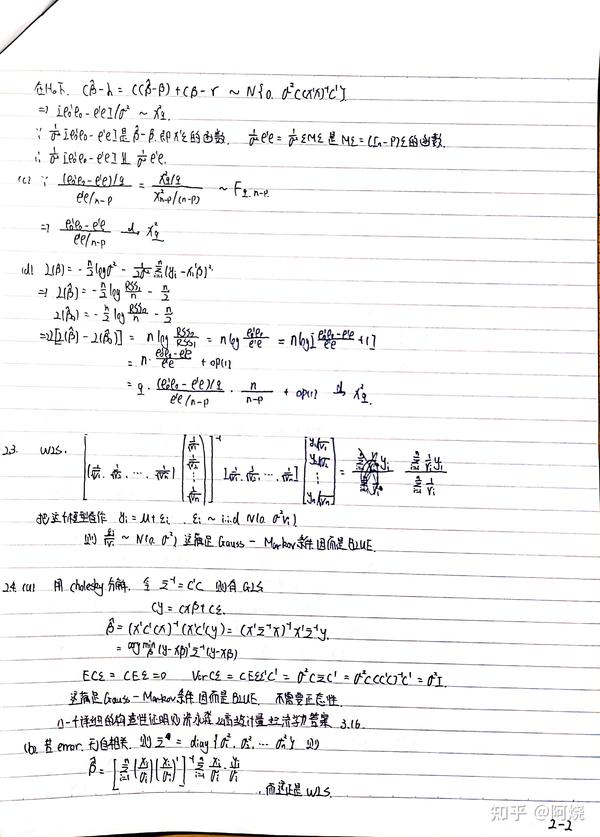 在H₀下. Cβ̂-r = C(β̂-β)+Cβ-r ~ N{0, σ²C(X'X)⁻¹C'}
⇒ [e₀'e₀-e'e]/σ² ~ χ²q.
∵ 1/σ² [e₀'e₀-e'e]是β̂-β, 即X'ε的函数. 1/σ² e'e = 1/σ² εMε 是Mε=(In-P)ε的函数.
∴ 1/σ² [e₀'e₀-e'e] ⫫ 1/σ² e'e.
(c) ∵ (e₀'e₀-e'e)/q / e'e/n-p = χ²q/q / χ²n-p/(n-p) ~ Fq, n-p.
⇒ e₀'e₀-e'e / e'e/n-p →d χ²q
(d) L(β) = -n/2 logσ² - 1/2σ² Σⁿᵢ₌₁(yi-xi'β)²
⇒ L(β̂) = -n/2 log RSS/n - n/2
L(β̂₀) = -n/2 log RSS₀/n - n/2
⇒2[L(β̂)-L(β̂₀)] = n log RSS₀/RSS₁ = n log e₀'e₀/e'e = n log[e₀'e₀-e'e/e'e +1]
= n· e₀'e₀-e'e/e'e + op(1)
= q· (e₀'e₀-e'e)/q / e'e/n-p · n/n-p + op(1) →d χ²q.
2.3. WLS. [(1/√v₁, 1/√v₂, ⋯, 1/√vn) (1/√v₁ 1/√v₂ ⋮ 1/√vn)]⁻¹ [1/√v₁, 1/√v₂, ⋯, 1/√vn] [y₁/√v₁ y₂/√v₂ ⋮ yn/√vn] = Σⁿᵢ₌₁ 1/vi yi / Σⁿᵢ₌₁ 1/vi
把这个模型看作 yi = μ+εi, εi ~ i.i.d N(0, σ²vi)
则 εi/√vi ~ N(0, σ²) 这满足Gauss-Markov条件因而是BLUE.
2.4. (a) 用cholesky分解. 令 Σ⁻¹=C'C 则有GLS
Cy = CXβ+Cε.
β̂ = (X'C'CX)⁻¹(X'C'Cy) = (X'Σ⁻¹X)⁻¹X'Σ⁻¹y.
= arg min β (y-Xβ)'Σ⁻¹(y-Xβ)
ECε = CEε=0 VarCε = CEεε'C' = σ²CΣC' = σ²CC⁻¹(C')⁻¹C' = σ²I.
这满足Gauss-Markov条件因而是BLUE. 不需要正态性.
(b) 若error无自相关, 则Σ = diag{σ₁², σ₂², ⋯ σn²} 则
β̂ = [Σⁿᵢ₌₁ (xi/σi)(xi/σi)']⁻¹ Σⁿᵢ₌₁ xi/σi · yi/σi
, 而这正是WLS.
知乎 @阿烧
2-2